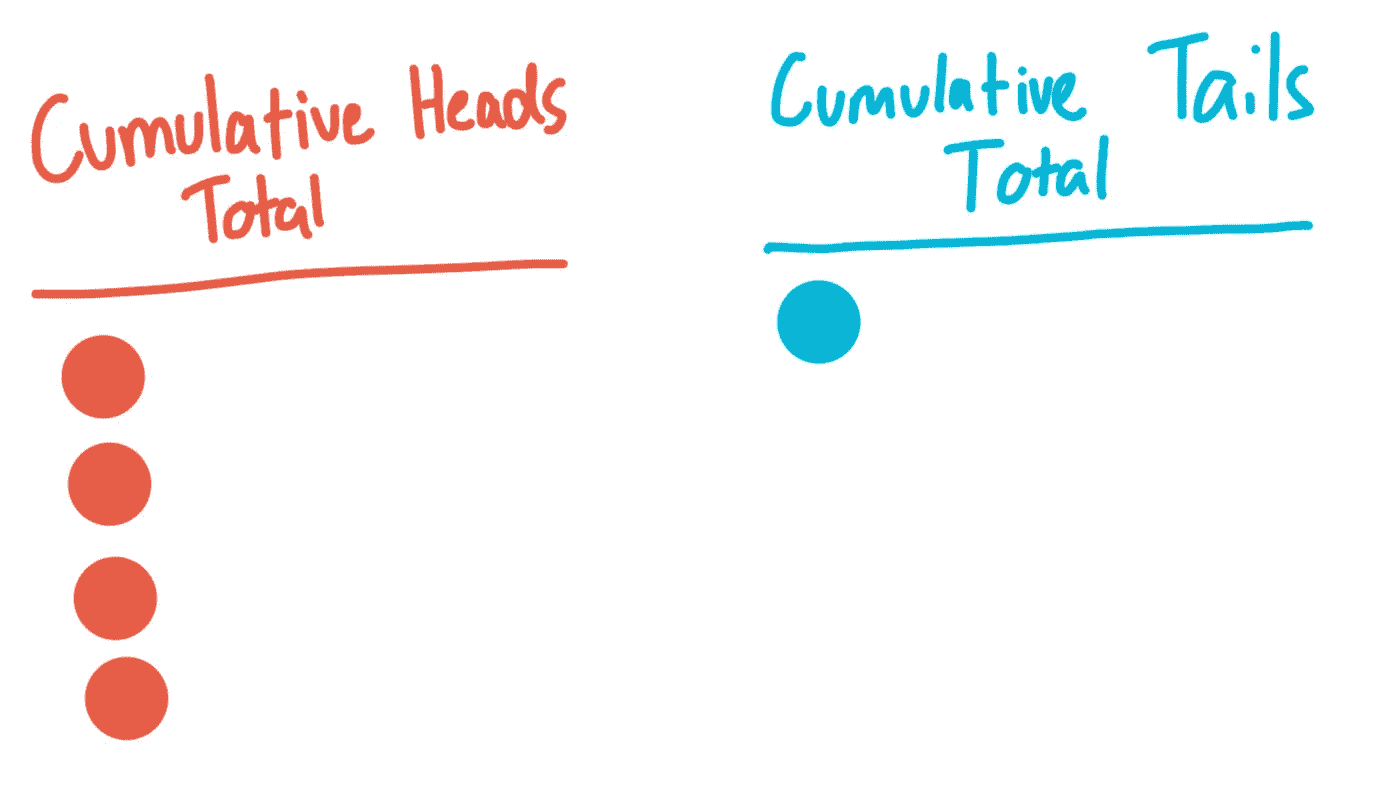 Cumulative Heads
Total
Cumulative Tails
Total